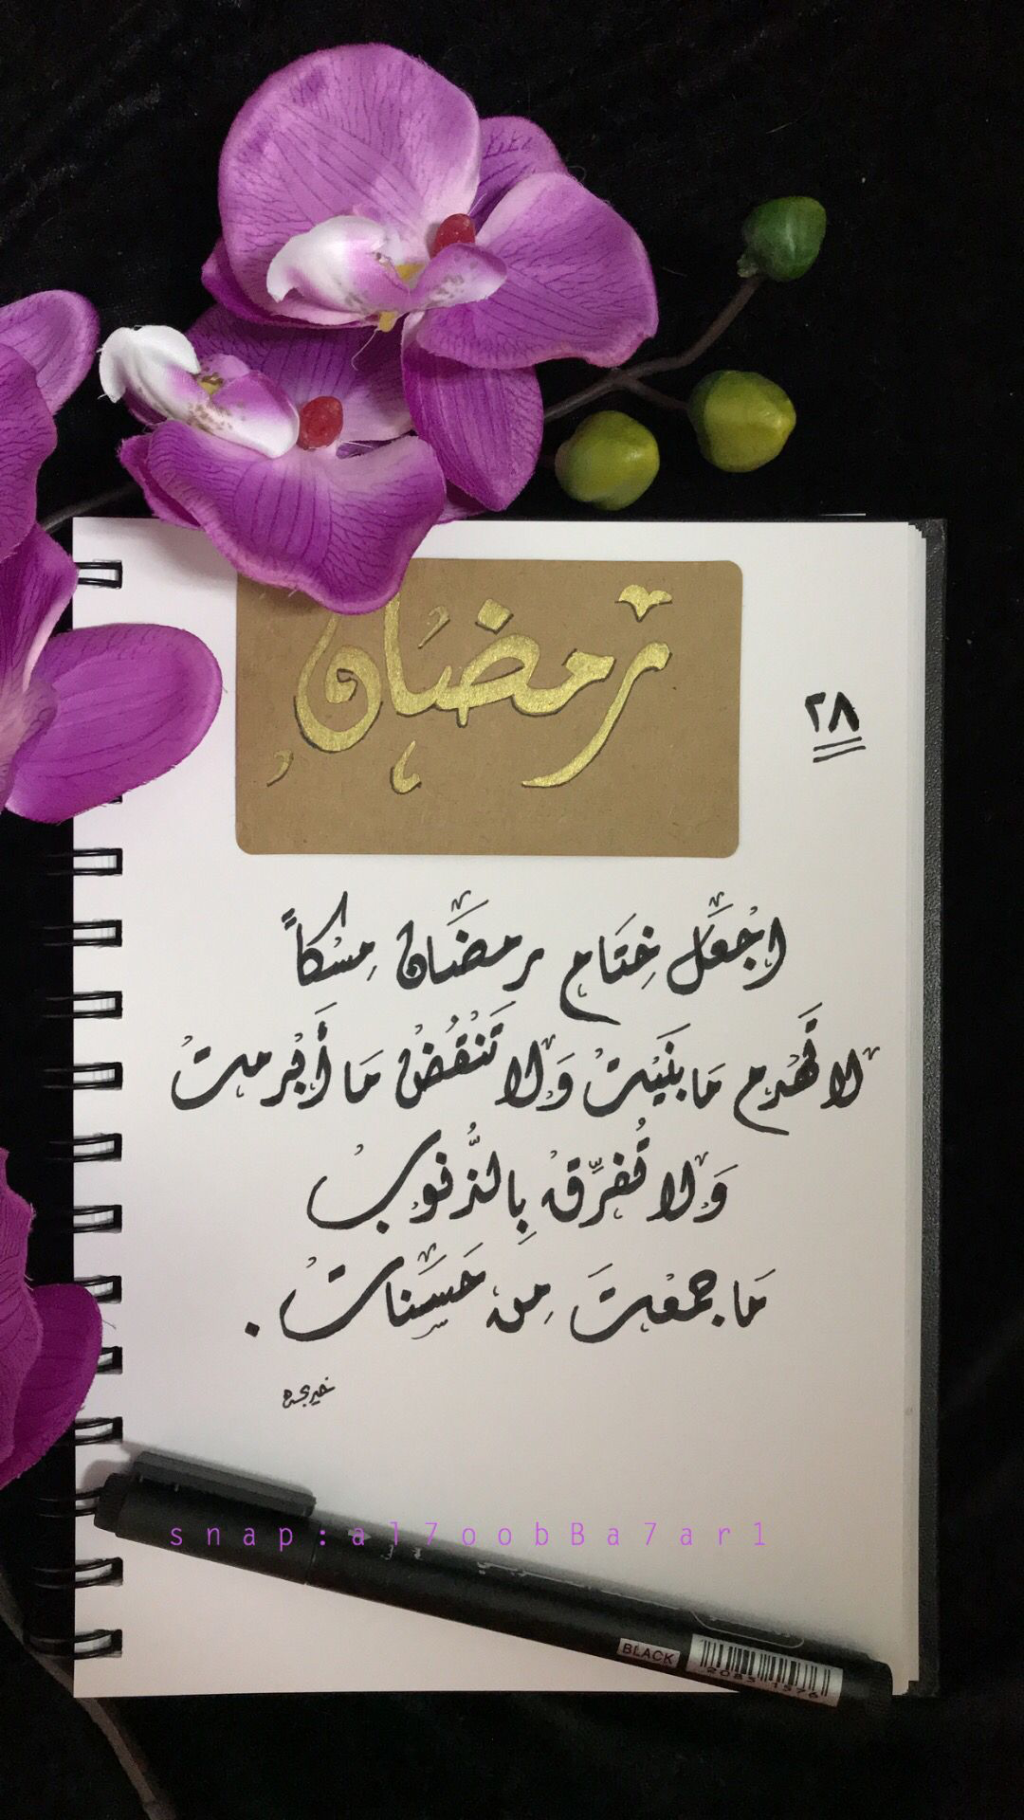 رمضان
٢٨
اجْعَل خِتَام رمضَان مِسْكاً
لا تَهْدِم مَا بَنَيْتْ وَلا تَنْقُضْ مَا أَبْرمتْ
وَلا تُفرِّقْ بِالذُّنوبْ
مَا جمعْتَ مِن حَسَناتْ .
snap:al7oobBa7ar1
BLACK